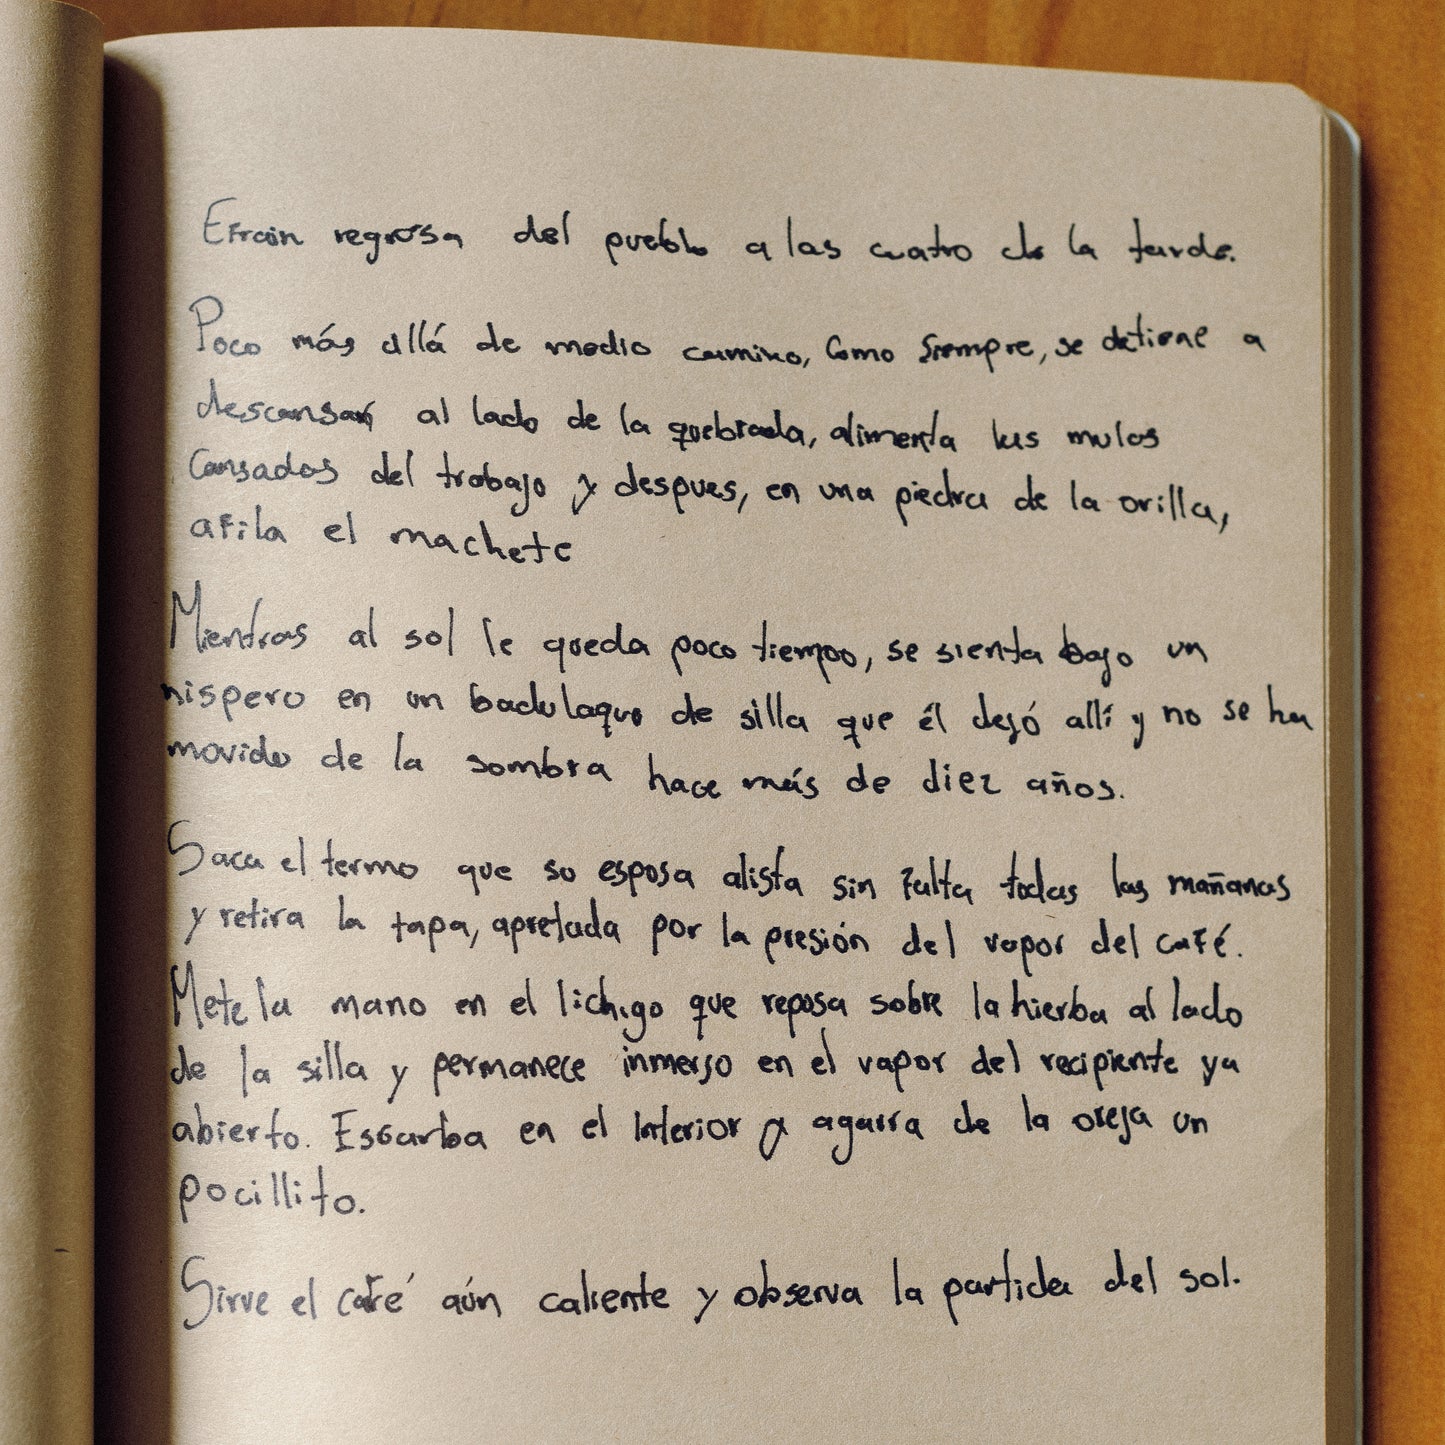 Efrain regresa del pueblo a las cuatro de la tarde.
Poco más allá de medio camino, como siempre, se detiene a
descansar al lado de la quebrada, alimenta las mulas
cansadas del trabajo y despues, en una piedra de la orilla,
afila el machete
Mientras al sol le queda poco tiempo, se sienta bajo un
nispero en un badulaque de silla que él dejó allí y no se ha
movido de la sombra hace más de diez años.
Saca el termo que su esposa alista sin falta todas las mañanas
y retira la tapa, apretada por la presión del vapor del café.
Mete la mano en el lichigo que reposa sobre la hierba al lado
de la silla y permanece inmerso en el vapor del recipiente ya
abierto. Escarba en el interior y agarra de la oreja un
pocillito.
Sirve el café aún caliente y observa la partida del sol.